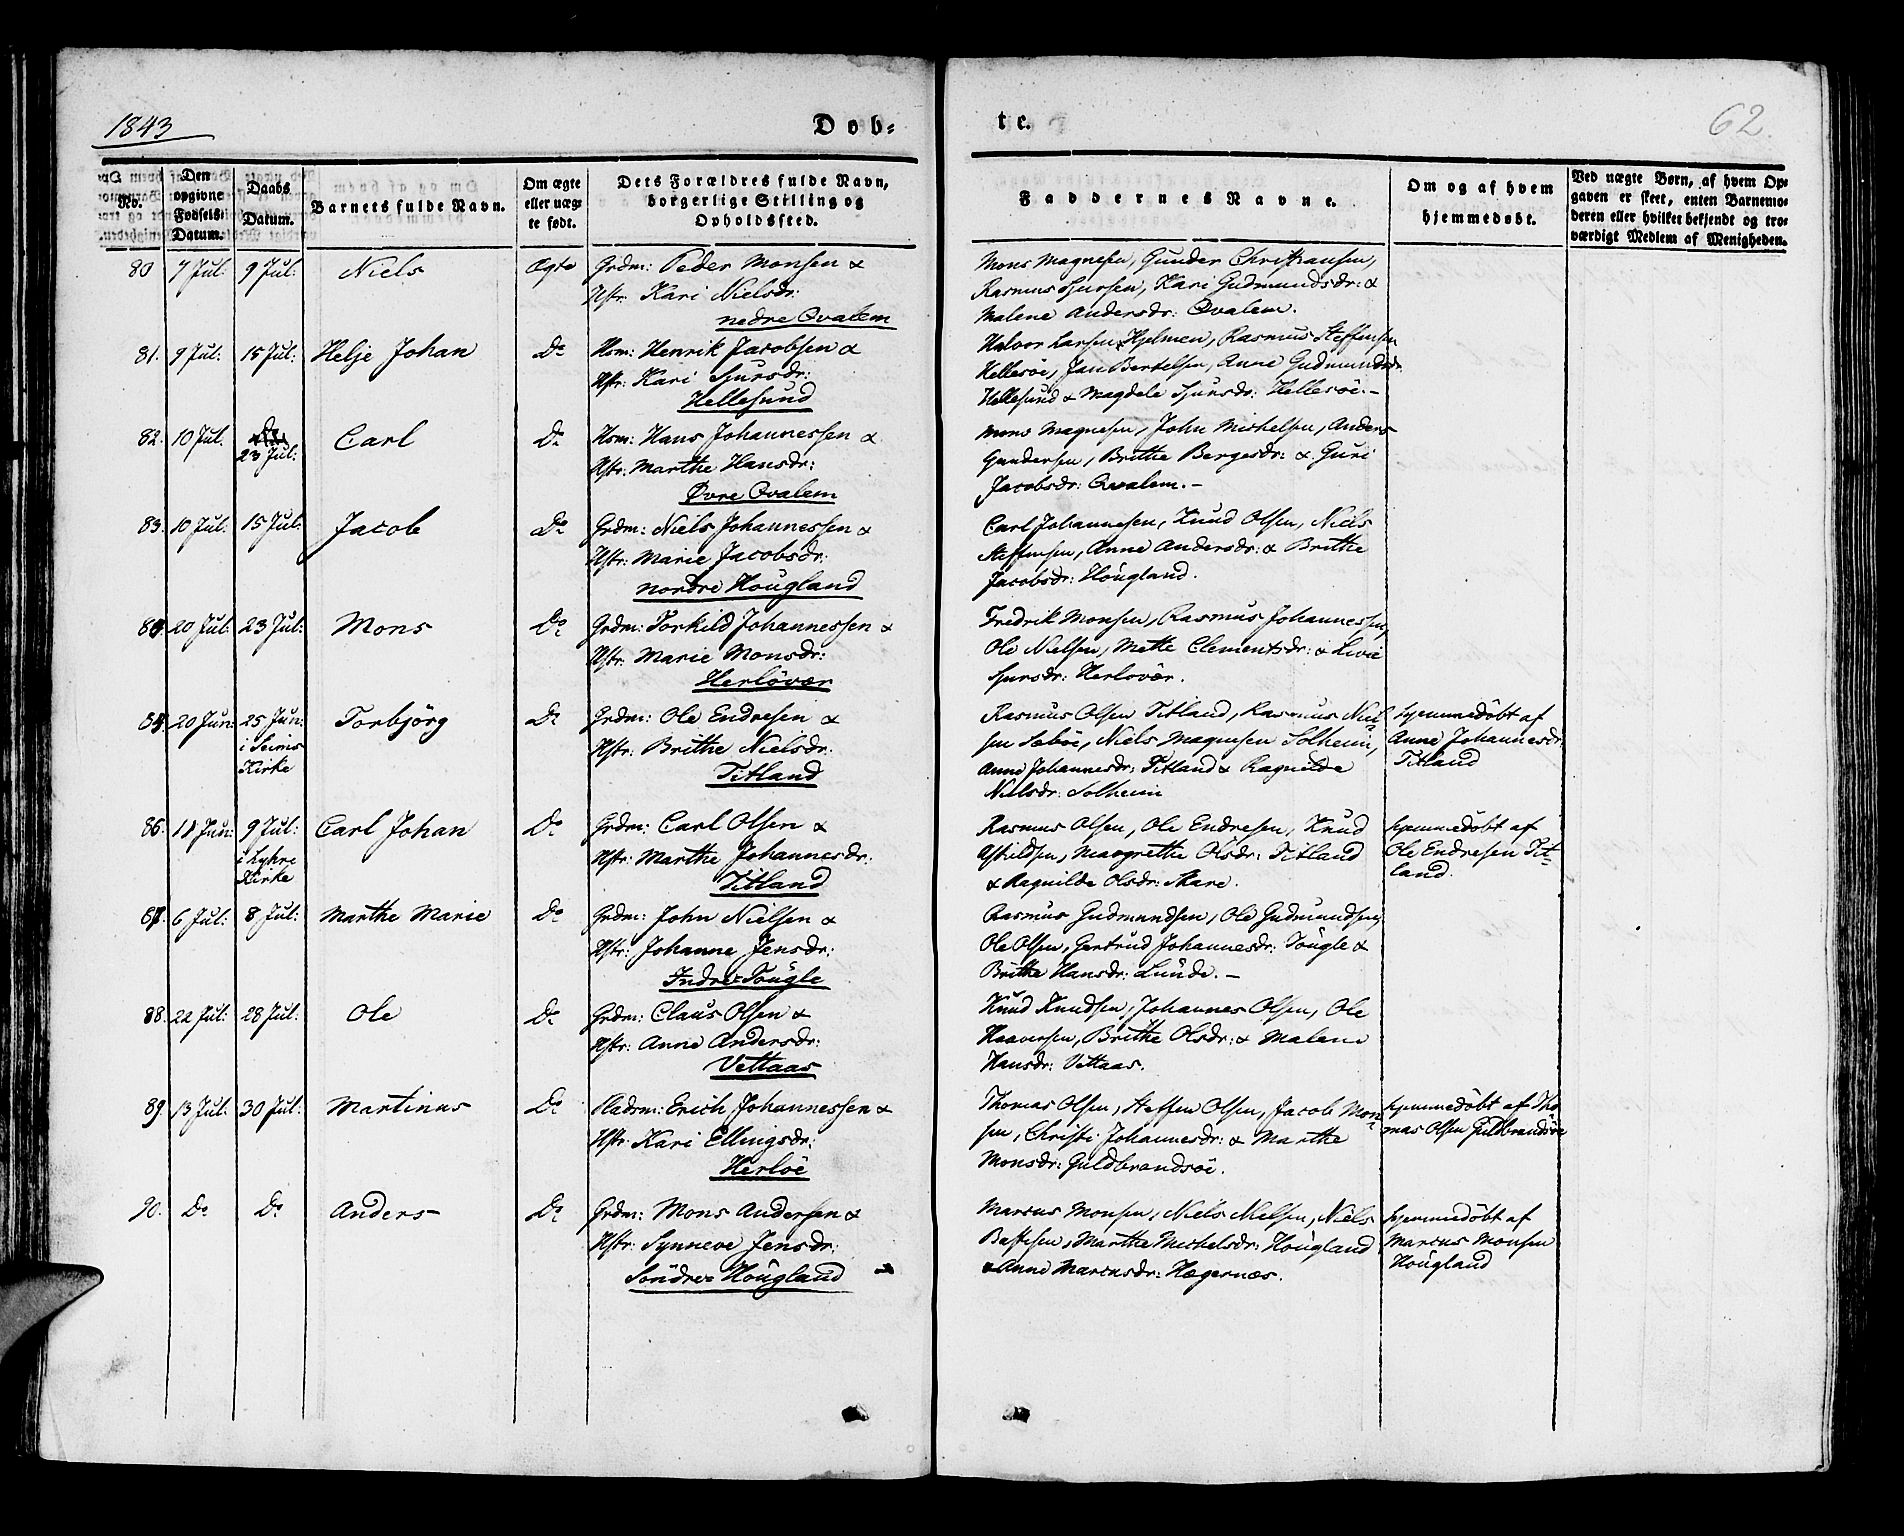 1843
Døb-
te.
62.
No.
Den opgivne Fødsels Datum.
Daabs Datum.
Barnets fulde Navn.
Om ægte eller uægte født.
Dets Forældres fulde Navn, borgerlige Stilling og Opholdssted.
Faddernes Navne.
Om og af hvem hjemmedøbt.
Ved uægte Børn, af hvem Opgaven er skeet, enten Barnemoderen eller hvilket bekjendt og troværdigt Medlem af Menigheden.
80 7 Jul: 9 Jul: Niels Ægte Grdm: Peder Monsen &
Hstr: Kari Nielsdr:
nedre Qvalem
Mons Magnesen, Gunder Christiansen,
Rasmus Sjursen, Kari Gudmundsdr: &
Malene Andersdr: Qvalem.
81. 9 Jul: 15 Jul: Helje Johan Do Hsm: Henrik Jacobsen &
Hstr: Kari Sjursdr:
Hellesund
Halvor Larsen Hjelmen, Rasmus Steffensen
Hellesöe, Jan Bertelsen, Anne Gudmundsdr:
Hellesund & Magdele Sjursdr: Hellesöe.-
82. 10 Jul: 23 Jul: Carl Do Hsm: Hans Johannessen &
Hstr: Marthe Hansdr:
Øvre Qvalem
Mons Magnesen, John Michelsen, Anders
Gundersen, Brithe Bergesdr: & Guri
Jacobsdr: Qvalem.-
83. 10 Jul: 15 Jul: Jacob Do Grdm: Niels Johannessen &
Hstr: Marie Jacobsdr:
nordre Hougland
Carl Johannesen, Knud Olsen, Niels
Steffensen, Anne Andersdr: & Brithe
Jacobsdr: Hougland.
84. 20 Jul: 23 Jul: Mons Do Grdm: Torkild Johannessen &
Hstr: Marie Monsdr:
Herlövær
Fredrik Monsen, Rasmus Johannessen,
Ole Nielsen, Mette Clementsdr: &
Sjursdr: Herlovær.
85. 20 Jun: 25 Jun: i Seims Kirke Torbjörg Do Grdm: Ole Endresen &
Hstr: Brithe Nielsdr:
Titland
Rasmus Olsen Titland, Rasmus Niel
sen Sæböe, Niels Magnesen Solheim,
Anne Johannesdr: Titland & Ragnilde
Nielsdr: Solheim
hjemmedöbt af
Anne Johannesdr:
Titland
86. Jun: 9 Jul: i Lyhre Kirke Carl Johan Do Grdm: Carl Olsen &
Hstr: Marthe Johannesdr:
Titland
Rasmus Olsen, Ole Endresen, Knud
Margrethe Olsdr: Titland
& Ragnilde Olsdr: Skare.
hjemmedöbt af
Ole Endresen Tit-
land
87. 6 Jul: 8 Jul: Marthe Marie Do Grdm: John Nielsen &
Hstr: Johanne Jensdr:
Indre Tougle
Rasmus Gudmundsen, Ole Gudmundsen,
Ole Olsen, Gertrud Johannesdr: Tougle &
Brithe Hansdr: Lunde.-
88. 22 Jul: 28 Jul: Ole Do Grdm: Claus Olsen &
Hstr: Anne Andersdr:
Vettaas
Knud Knudsen, Johannes Olsen, Ole
Haaversen, Brithe Olsdr: & Malene
Hansdr: Vettaas.
89. 13 Jul: 30 Jul: Martinus Do Pladsm: Erich Johannessen &
Hstr: Kari Ellingsdr:
Herlöe
Thomas Olsen, Steffen Olsen, Jacob Mon-
sen, Christi Johannesdr: & Marthe
Monsdr: Guldbrandsöe.
hjemmedöbt af Tho
mas Olsen Guldbrandsöe
90. Do Do Anders Do Grdm: Mons Andersen &
Hstr: Synneve Jensdr:
Söndre Hougland
Marcus Monsen, Niels Nielsen, Niels
Bastesen, Marthe Michelsdr: Hougland
& Anne Marcusdr: Hægernæs.
hjemmedöbt af
Marcus Monsen
Hougland